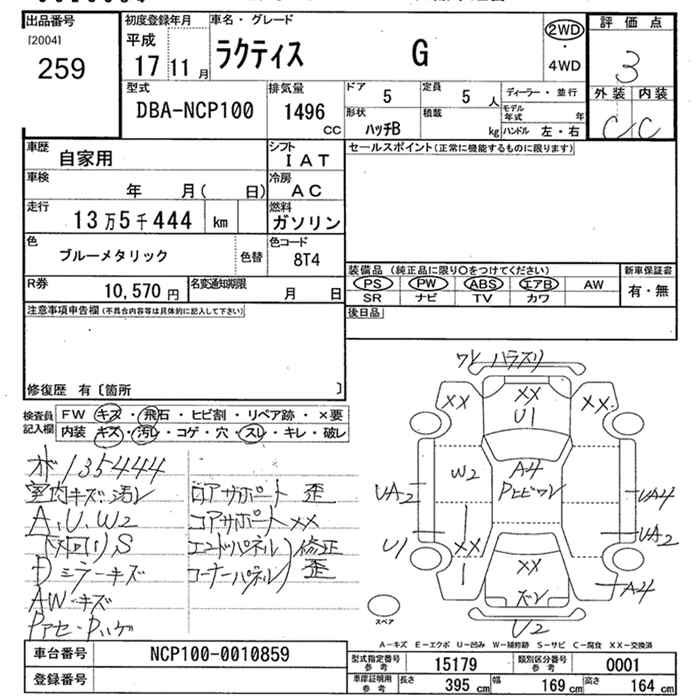 出品番号 初度登録年月 車名・グレード 評価点
[2004] 平成 ラクティス G 2WD
259 17 11月 ・ 3
4WD
型式 排気量 ドア 定員 ディーラー・並行 外装 内装
DBA-NCP100 1496 5 5人 モデル年式 年 C C
CC 形状 ハッチB 積載 kg ハンドル 左・右
車歴 自家用 シフト IAT セールスポイント(正常に機能するものに限ります)
車検 年 月( 日) 冷房 AC
走行 13万5千444 km 燃料 ガソリン
色 ブルーメタリック 色替 色コード 8T4
装備品 (純正品に限り○をつけてください) 新車保証書
R券 10,570円 名変通知期限 月 日 PS PW ABS エアB AW 有・無
SR ナビ TV カワ
注意事項申告欄(不具合内容等は具体的に記入して下さい) 後日品
修復歴 有〔箇所 〕
検査員記入欄 FW キズ・飛石・ヒビ割・リペア跡・×要
内装 キズ・汚れ・コゲ・穴・スレ・キレ・破レ
ワレ ハラスリ
XX XX XX
U1
W2 A4
UA2 UA4
UA2
U1 XX XX
A4
U2
スペア
135444
室内キズ汚レ ロアサポート 歪
A、U、W2 コアサポートXX
下回りS エンドパネル 修正
ミラーキズ コーナーパネル 歪
AW・キズ
A-キズ E-エクボ U-凹み W-補修跡 S-サビ C-腐食 XX-交換済
車台番号 NCP100-0010859 型式指定番号 参考 15179 類別区分番号 参考 0001
登録番号 車庫証明用 参考 長さ 395cm 幅 169cm 高さ 164cm